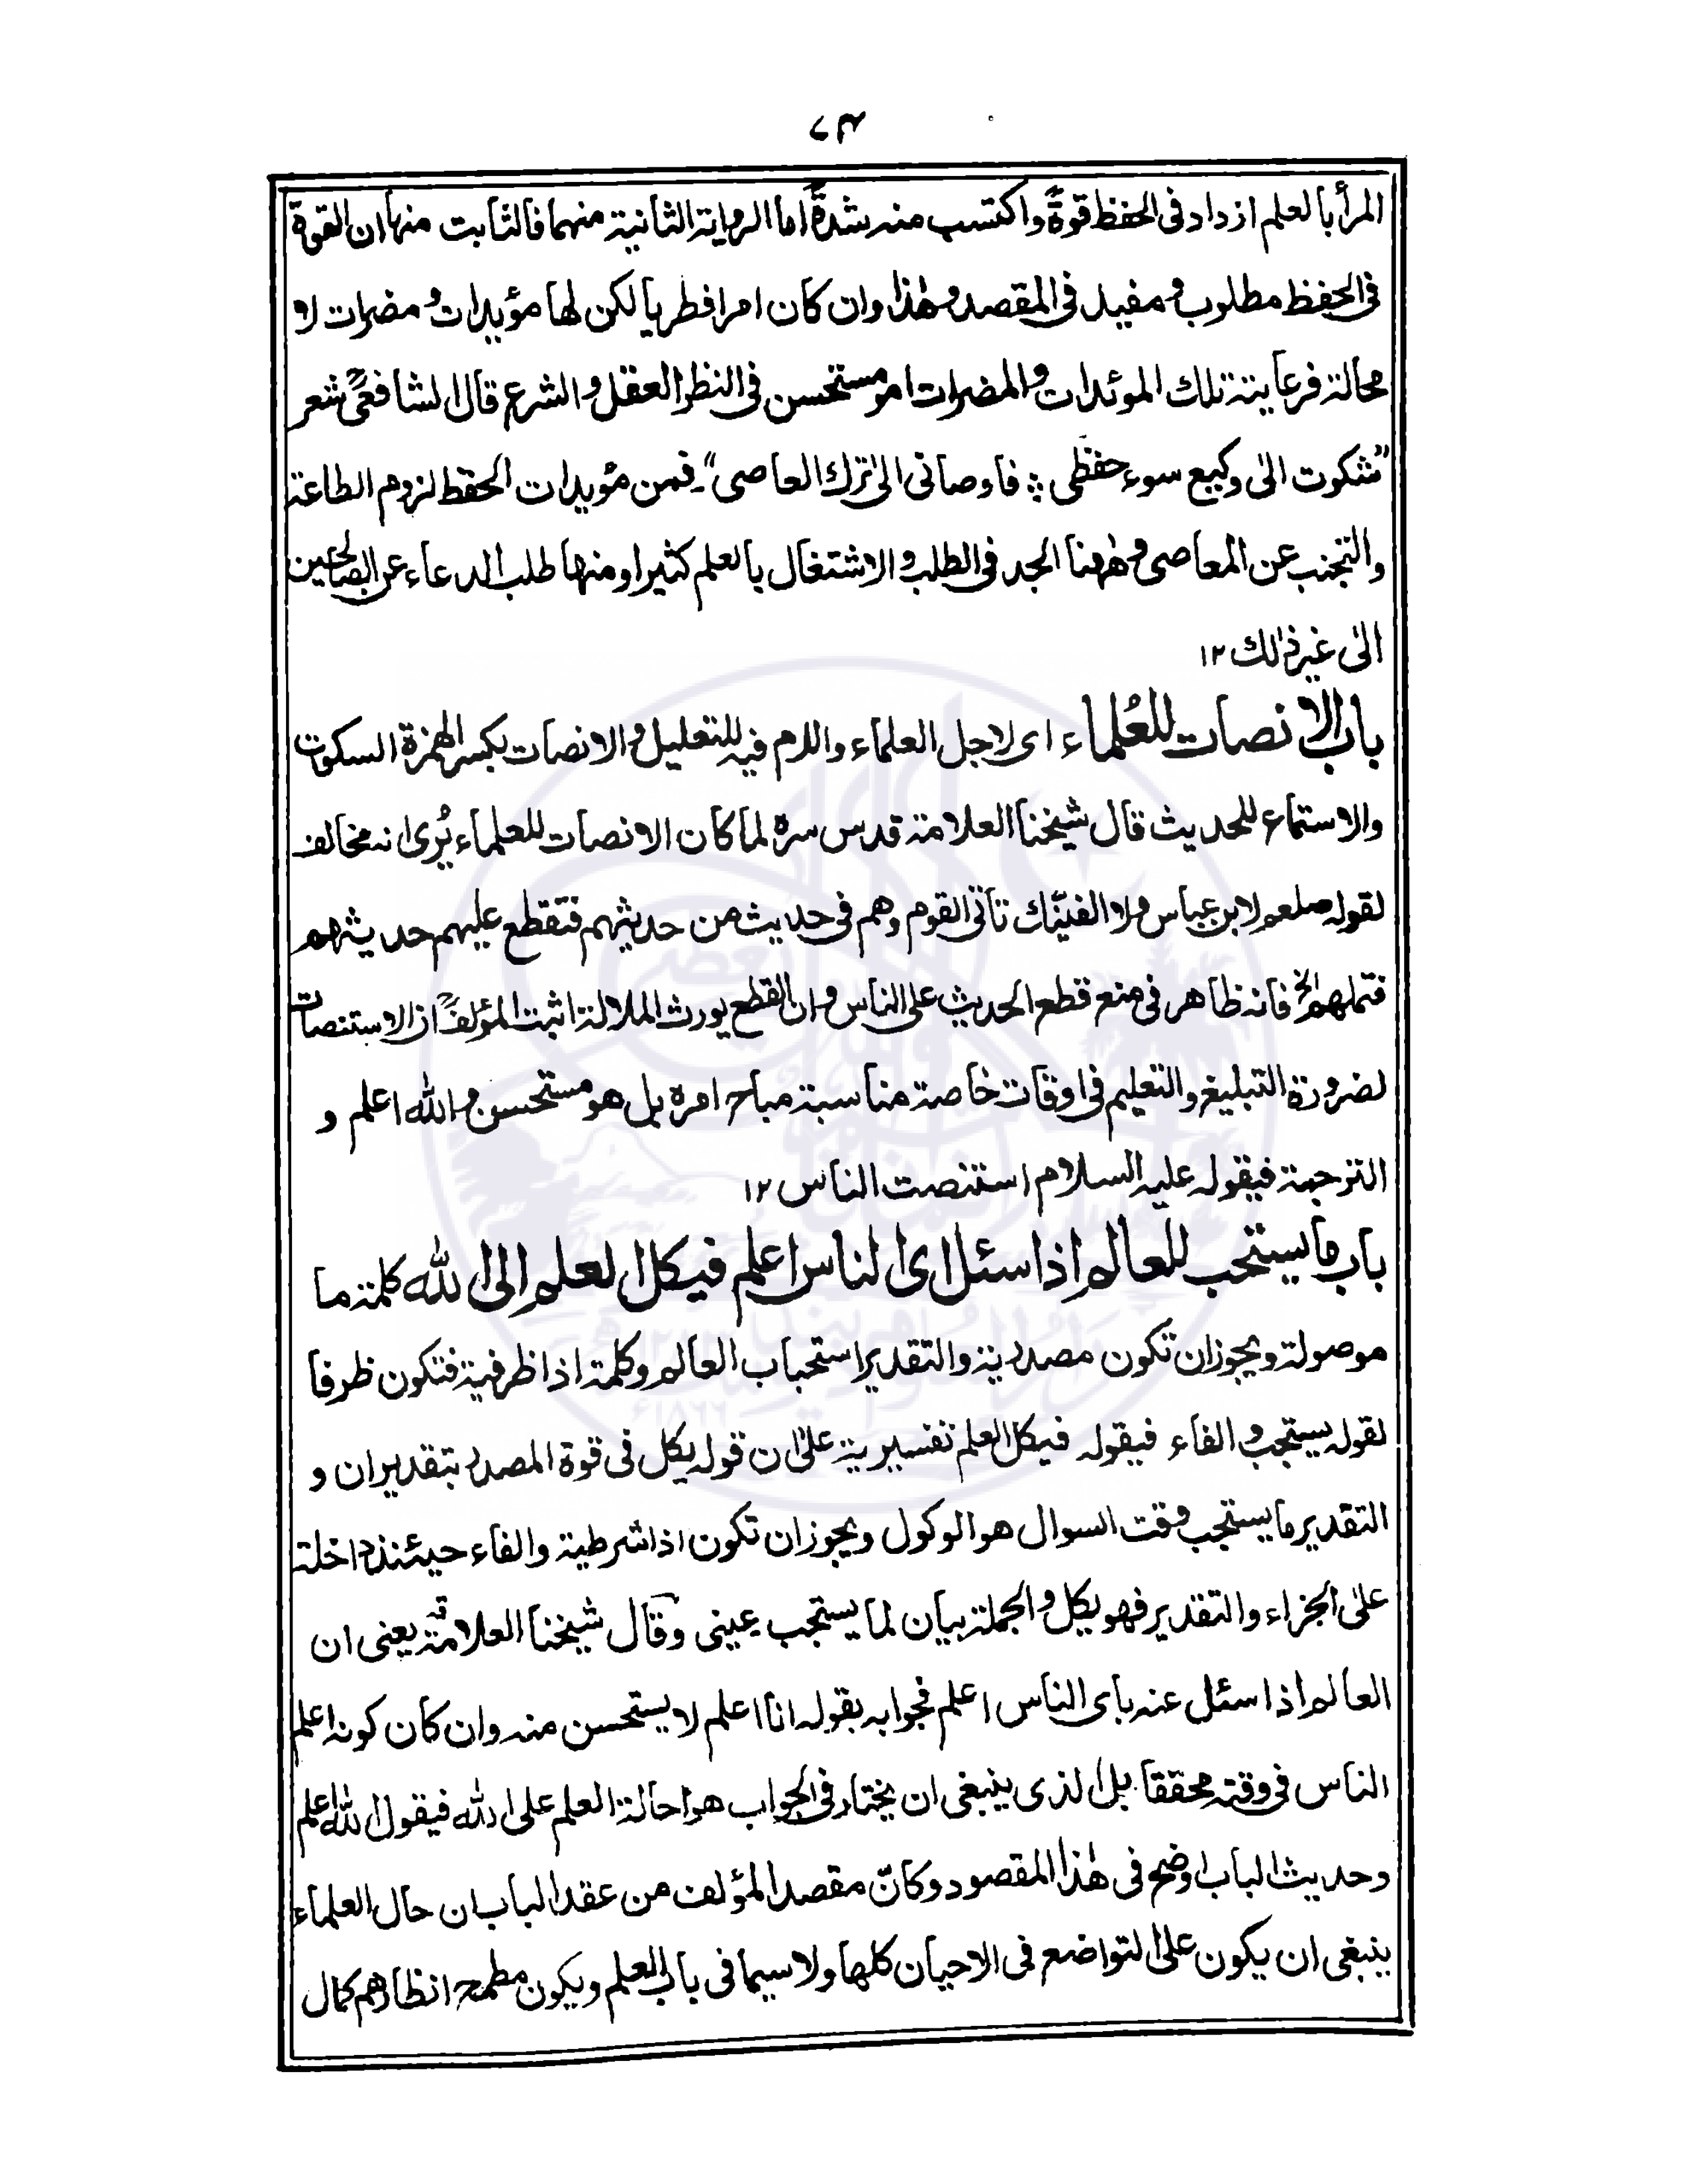 ۷۳
المرأ بالعلم ازداد فى الحفظ قوةً واكتسب منه شدةً اما الرواية الثانية منهما فالثابت منها ان القوة
فى الحفظ مطلوب ومفيد فى المقصد وهٰذا وان كان امرا فطريا لكن لها مؤيدات ومضرات لا
محالة فرعاية تلك الموئدات والمضرات امر مستحسن فى النظر العقل والشرع قال الشافعىؒ شعر
”شكوت الىٰ وكيع سوء حفظى ؞ فاوصانى الىٰ ترك العاصى“۔ فمن مؤيدات الحفظ لزوم الطاعة
والتجنب عن المعاصى وهٰهنا الجد فى الطلب والاشتغال بالعلم كثيرا ومنها طلب الدعاء عن الصالحين
الىٰ غير ذٰلك ۱۲
باب الانصات للعُلماء اى لاجل العلماء واللام فيه للتعليل والانصات بكسر الهمزة السكوت
والاستماع للحديث قال شيخنا العلامة قدس سره لما كان الانصات للعلماء يُرى انه مخالف
لقوله صلعم لابن عباس ولا الفينّك تأتى القوم وهم فى حديث من حديثهم فتقطع عليهم حديثهم
فتملهم الخ فانه ظاهر فى منع قطع الحديث على الناس وان القطع يورث الملالة اثبت المؤلفؒ ان الاستنصات
لضرورة التبليغ والتعليم فى اوقات خاصة مناسبة مباح امره بل هو مستحسن والله اعلم و
الترجمة فيقوله عليه السلام استنصت الناس ۱۲
باب ما يستحب للعالم اذا سئل اى الناس اعلم فيكل العلم الى الله كلمة ما
موصولة ويجوز ان تكون مصدرية والتقدير استحباب العالم وكلمة اذا ظرفية فتكون ظرفا
لقوله يستحب والفاء فيقوله فيكل العلم تفسيرية علىٰ ان قوله يكل فى قوة المصدر بتقدير ان و
التقدير ما يستحب وقت السوال هو الوكول ويجوز ان تكون اذا شرطية والفاء حيئنذ داخلة
علىٰ الجزاء والتقدير فهو يكل والجملة بيان لما يستحب عينى وقال شيخنا العلامة يعنى ان
العالم اذا سئل عنه باى الناس اعلم فجوابه بقوله انا اعلم لا يستحسن منه وان كان كونه اعلم
الناس فى وقته محققا بل الذى ينبغى ان يختار فى الجواب هو احالة العلم على الله فيقول الله اعلم
وحديث الباب اوضح فى هٰذا المقصود وكانّ مقصد المؤلف من عقد الباب ان حال العلماء
ينبغى ان يكون علىٰ التواضع فى الاحيان كلها ولا سيما فى باب العلم ويكون مطمح انظارهم كمال